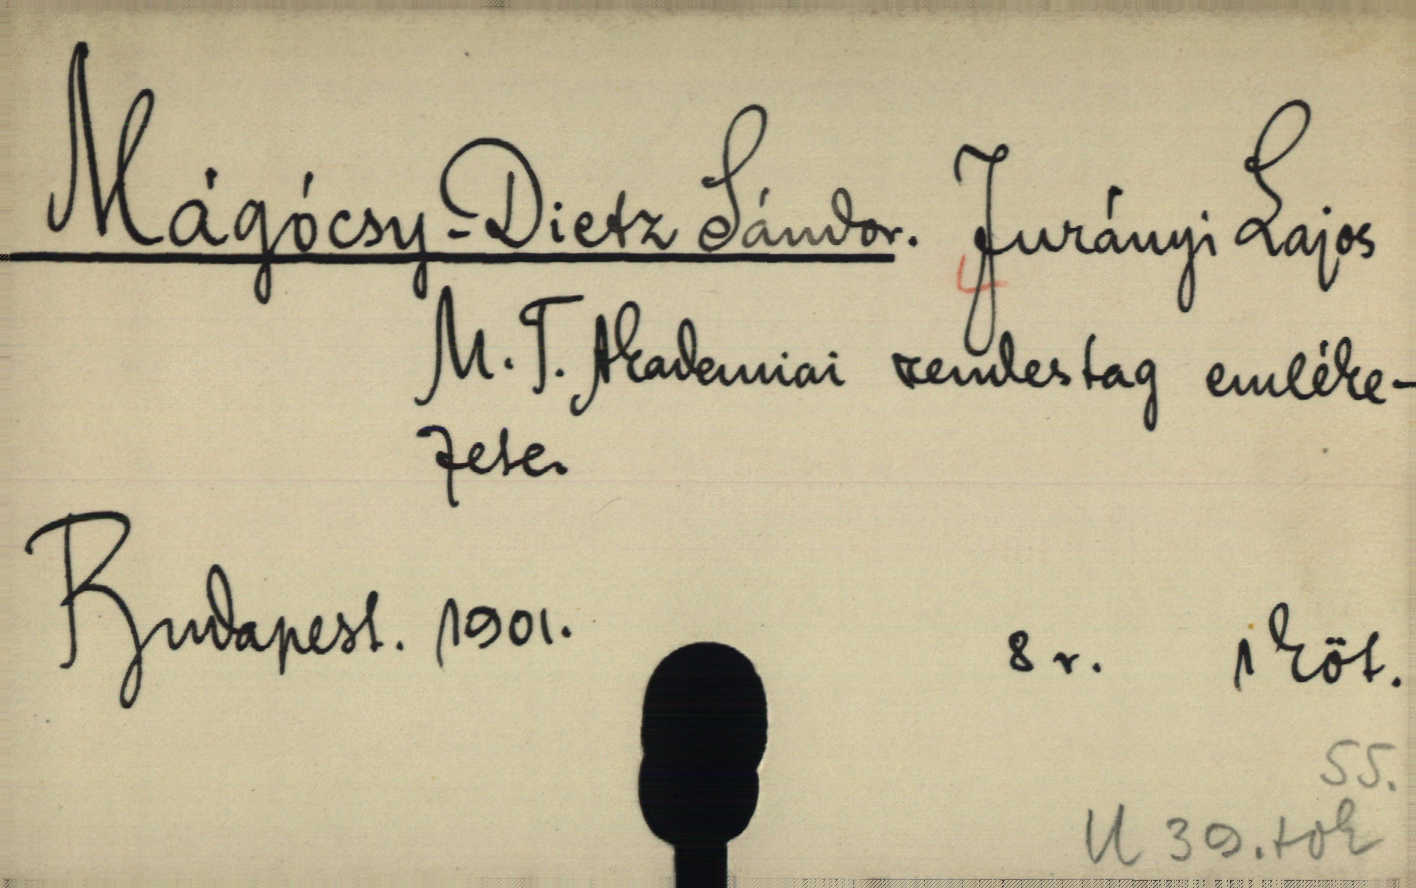 Mágócsy-Dietz Sándor. Jurányi Lajos
M. T. Akademiai rendestag emléke-
zete.
Budapest. 1901. 8 r. 1 köt.
55.
U 39. tok